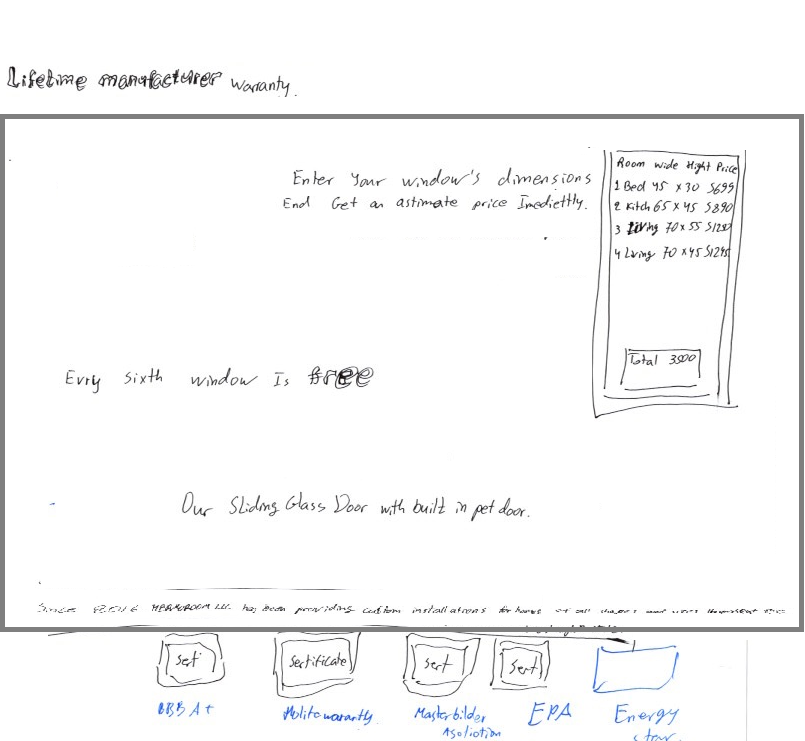 Lifetime manufacturer warranty.
Enter Your window's dimensions
End Get an astimate price Imediettly.
Room Wide Hight Price
1 Bed 45 x 30 $699
2 Kitch 65 x 45 $890
3 Living 70 x 55
4 Living 70 x 45 $1245
Total 3900
Evry sixth window Is free
Our Sliding Glass Door with built in pet door.
Since LLC has been providing custom installations for homes of all shapes and
Sertificate
Sert
Sert
BBB A+
warantly
Master bilder
Asoliotion
EPA
Energy
star